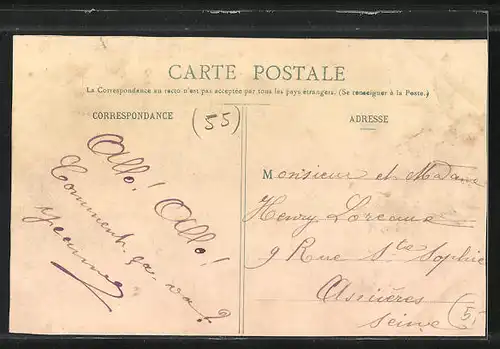 CARTE POSTALE
La Correspondance au recto n'est pas acceptée par tous les pays étrangers. (Se renseigner à la Poste.)
CORRESPONDANCE
(55)
ADRESSE
Allo! Allo!
Comment ça va?
Monsieur et Madame
Henry
9 Rue Ste Sophie
Asnières
Seine